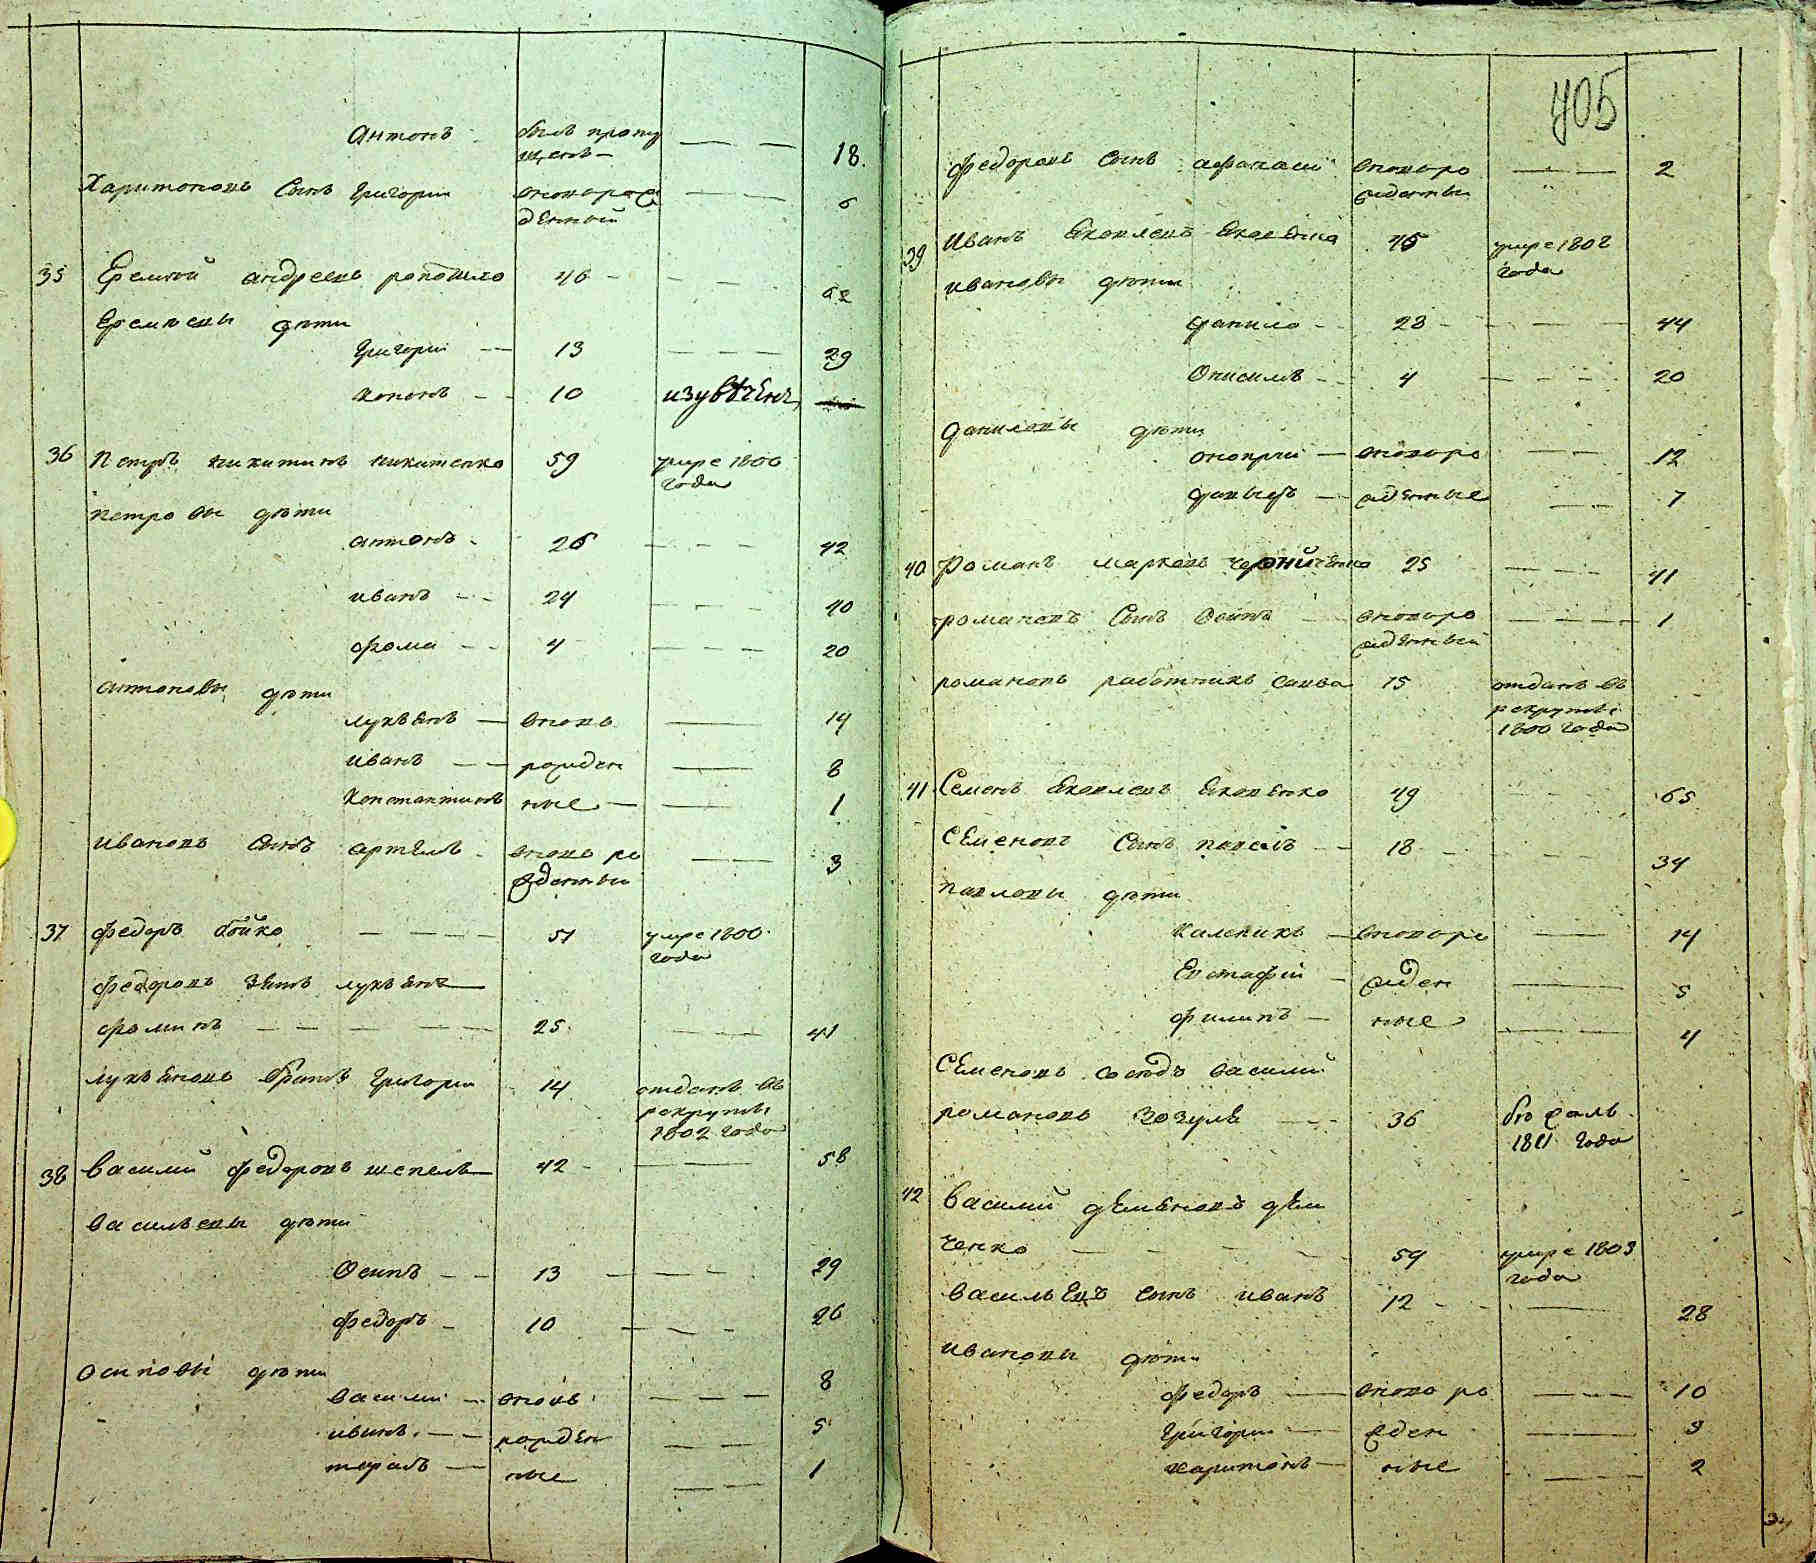 Антонъ был пропу — — 18.
щенъ —
Харитоновъ Сынъ Григорий вновьрож — — 6
денный
35 Еремѣй андреевъ 46 — — — 62
Еремѣевы дѣти
Григорий — 13 — — — 29
Кононъ — 10 изувѣченъ
36 Петръ никитинъ никитенко 59 умре 1806
года
Петровы дѣти
антонъ - 26 — — — 42
иванъ — 24 — — — 40
фома — 4 — — — 20
антоновы дѣти
лукьянъ — вновь — 14
иванъ — рожден — 8
Константинъ ные — — 1
ивановъ Сынъ артемъ - вновь ро — 3
жденный
37 федоръ бойко — — — 51 умре 1800
года
федоровъ зять лукьянъ
фоминъ — — — 25 — — 41
лукьяновъ братъ Григорий 14 отданъ въ
рекруты
1802 года
38 василий федоровъ шепель 42 - — — 58
васильевы дѣти
Осипъ — 13 — — — 29
федоръ — 10 — — — 26
осиповы дѣти
василий — вновь — — — 8
иванъ — рожден — — 5
тарасъ — ные — — 1
405
федоровъ Сынъ афанасий вновьро — — 2
жденный
39 Иванъ Яковлевъ Яковенко 45 умре 1808
года
ивановы дѣти
данило — 28 - — — — 44
Онисимъ — 4 — — — 20
даниловы дѣти
оноприй — вновьро — — 12
давыдъ — жденные — — 7
40 Романъ марковъ черниченко 25 — — — 41
романовъ Сынъ Осипъ вновьро — — — 1
жденный
романовъ работникъ савва 15 отданъ въ
рекруты
1800 года
41 Семенъ Яковлевъ Яковенко 49 - - 65
Семеновъ Сынъ павелъ — 18 - - 34
павловы дѣти
Каленикъ — вновьро — 14
Евстафий — жден — 5
филипъ — ные — 4
Семеновъ сосѣдъ василий
романовъ Зозуля — — 36 бѣжалъ
1811 года
42 Василий демяновъ дем
ченко — — — — 59 умре 1803
года
васильевъ сынъ иванъ 12 - — — 28
ивановы дѣти
федоръ — вновь ро — — 10
Григорий — жден — — 3
харитонъ — ные — — 2
34